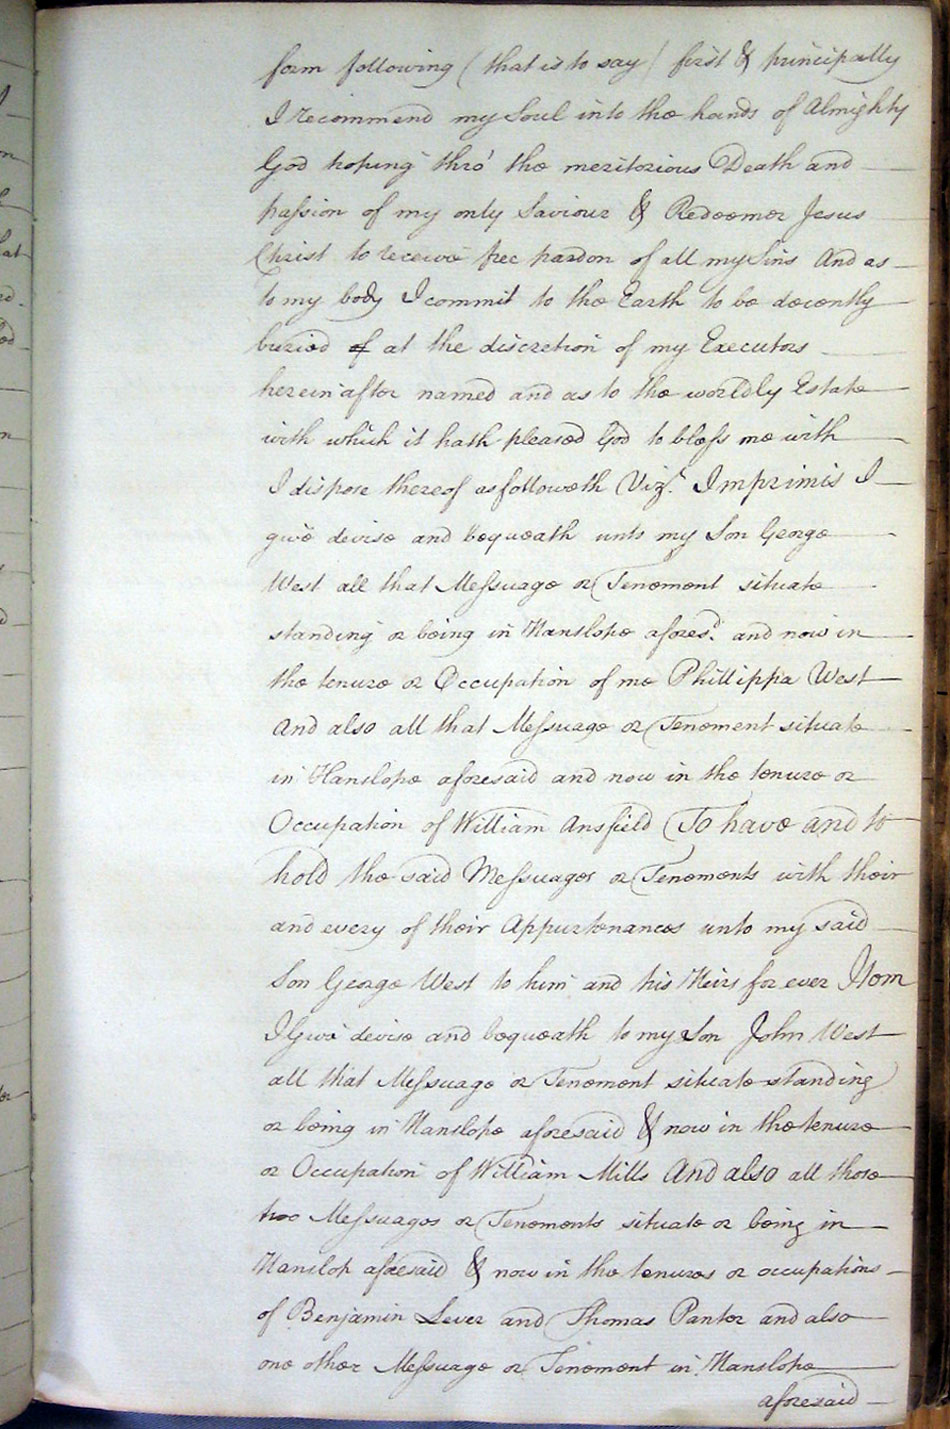 form following (that is to say) first & principally
I recommend my Soul into the hands of Almighty
God hoping thro' the meritorious Death and
passion of my only Saviour & Redeemer Jesus
Christ to receive free pardon of all my Sins And as
to my body I commit to the Earth to be decently
buried of at the discretion of my Executors
herein after named and as to the worldly Estate
with which it hath pleased God to bless me with
I dispose thereof as followeth Vizt. Imprimis I
give devise and bequeath unto my Son George
West all that Messuage or Tenement situate
standing or being in Hanslope aforesd. and now in
the tenure or Occupation of me Phillippa West
And also all that Messuage or Tenement situate
in Hanslope aforesaid and now in the tenure or
Occupation of William Ansfield To have and to
hold the said Messuages or Tenements with their
and every of their Appurtenances unto my said
Son George West to him and his Heirs for ever Item
I Give devise and bequeath to my Son John West
all that Messuage or Tenement situate standing
or being in Hanslope aforesaid & now in the tenure
or Occupation of William Mills And also all those
two Messuages or Tenements situate or being in
Hanslop aforesaid & now in the tenures or occupations
of Benjamin Lever and Thomas Panter and also
one other Messuage or Tenement in Hanslope
aforesaid